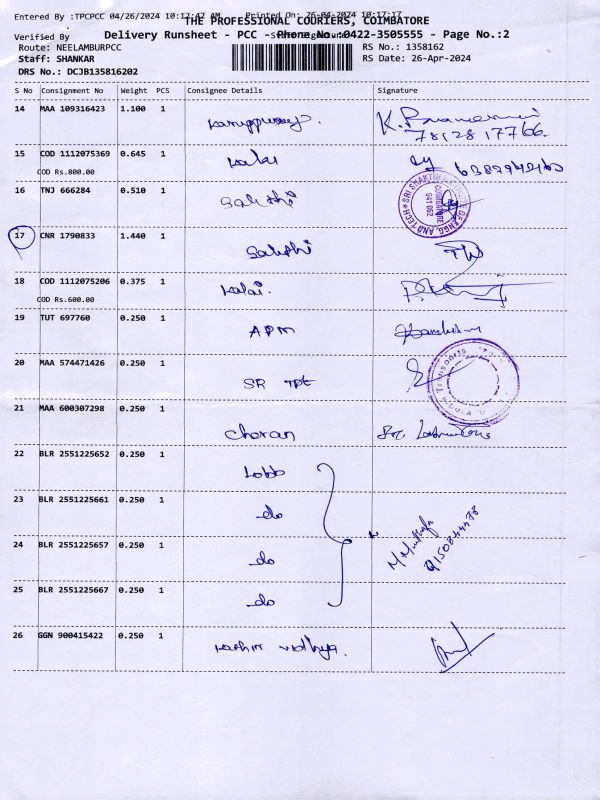 Entered By :TPCPCC 04/26/2024 10:12:42 AM Printed On: 26-04-2024 10:17:17
THE PROFESSIONAL COURIERS, COIMBATORE
Verified By
Delivery Runsheet - PCC - Phone No.:0422-3505555 - Page No.:2
Route: NEELAMBURPCC
RS No.: 1358162
Staff: SHANKAR
RS Date: 26-Apr-2024
DRS No.: DCJB135816202
S No Consignment No Weight PCS Consignee Details Signature
14 MAA 109316423 1.100 1
7812817766
15 COD 1112075369 0.645 1 Kalai
COD Rs.800.00
16 TNJ 666284 0.510 1 Sakthi
COIMBATORE
641 062
17 CNR 1790833 1.440 1 Sakthi
18 COD 1112075206 0.375 1 Kalai.
COD Rs.600.00
19 TUT 697760 0.250 1 APM
20 MAA 574471426 0.250 1 SR TPT
21 MAA 600307298 0.250 1 Charan
22 BLR 2551225652 0.250 1
23 BLR 2551225661 0.250 1 do
24 BLR 2551225657 0.250 1 do
25 BLR 2551225667 0.250 1 do
26 GGN 900415422 0.250 1